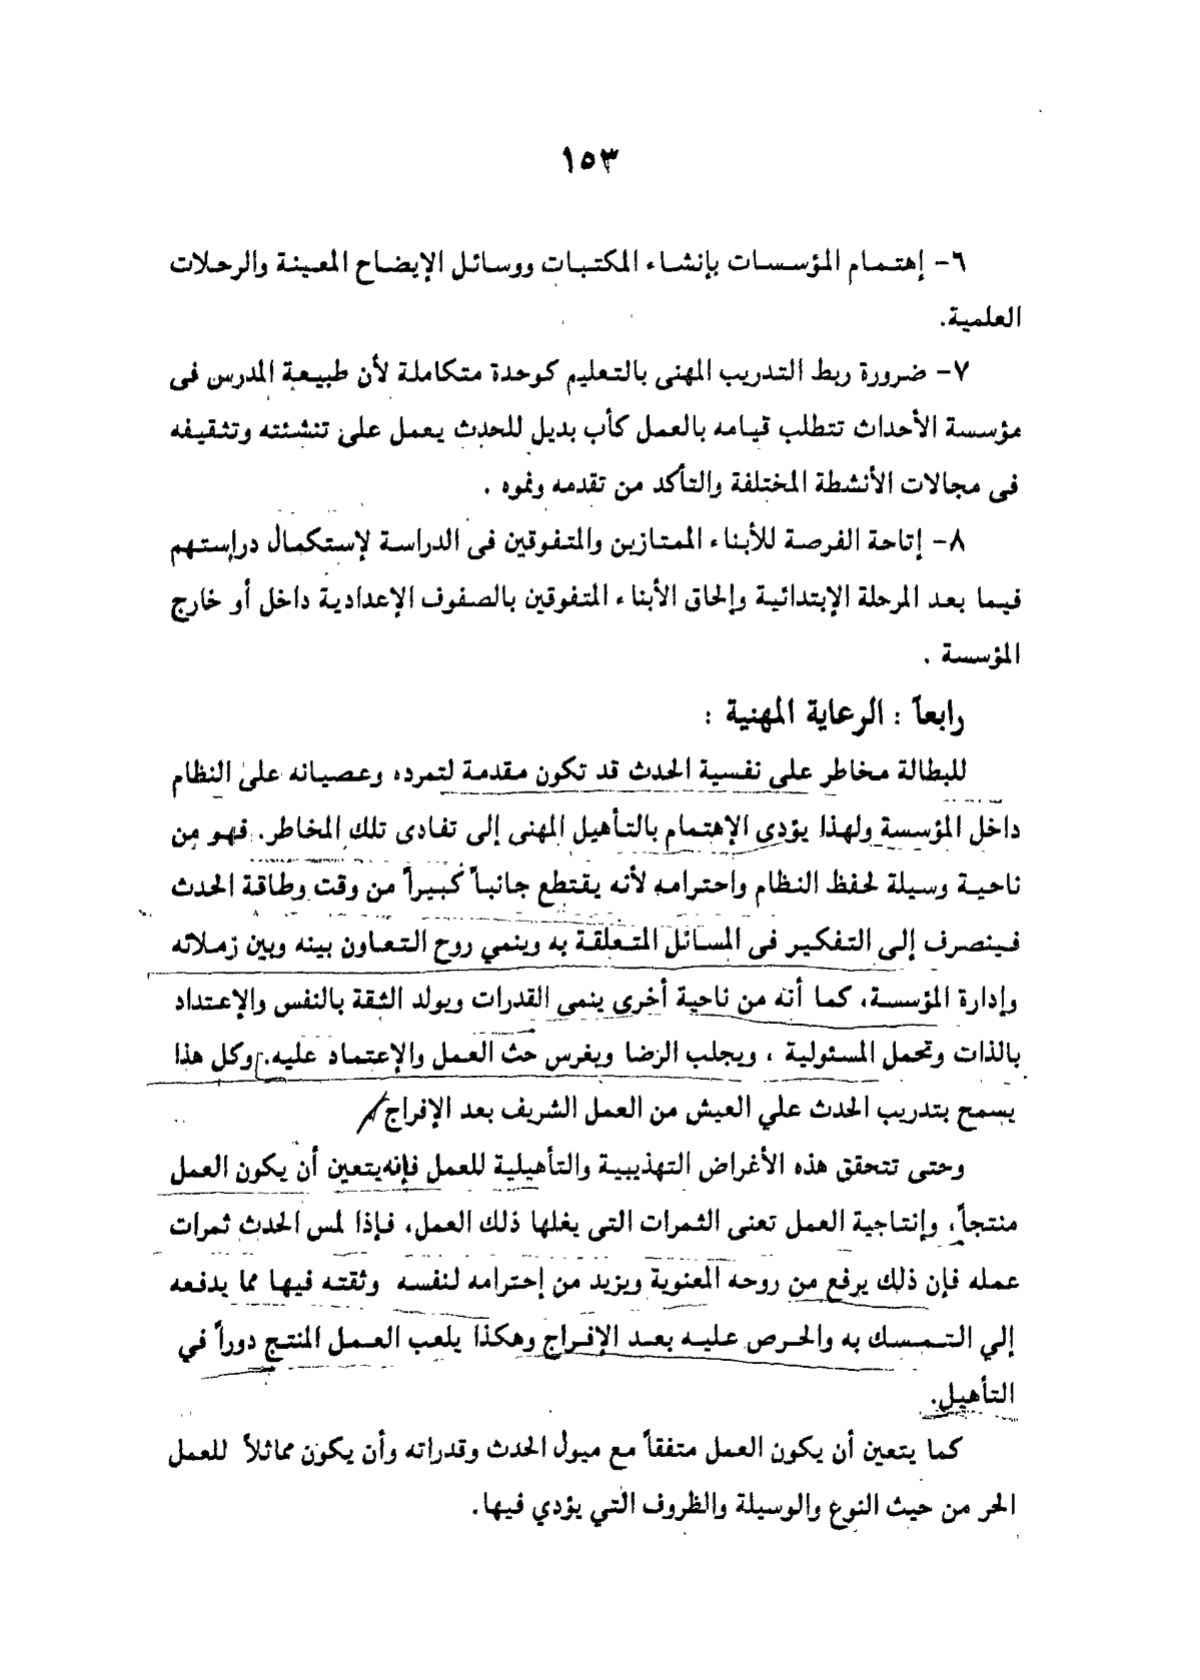 ١٥٣
٦- إهتمام المؤسسات بإنشاء المكتبات ووسائل الإيضاح المعينة والرحلات
العلمية.
٧- ضرورة ربط التدريب المهنى بالتعليم كوحدة متكاملة لأن طبيعة المدرس فى
مؤسسة الأحداث تتطلب قيامه بالعمل كأب بديل للحدث يعمل على تنشئته وتثقيفه
فى مجالات الأنشطة المختلفة والتأكد من تقدمه ونموه .
٨- إتاحة الفرصة للأبناء الممتازين والمتفوقين فى الدراسة لإستكمال دراستهم
فيما بعد المرحلة الإبتدائية وإلحاق الأبناء المتفوقين بالصفوف الإعدادية داخل أو خارج
المؤسسة .
رابعاً : الرعاية المهنية :
للبطالة مخاطر على نفسية الحدث قد تكون مقدمة لتمرده وعصيانه على النظام
داخل المؤسسة ولهذا يؤدى الإهتمام بالتأهيل المهنى إلى تفادى تلك المخاطر. فهو من
ناحية وسيلة لحفظ النظام واحترامه لأنه يقتطع جانباً كبيراً من وقت وطاقة الحدث
فينصرف إلى التفكير فى المسائل المتعلقة به وينمي روح التعاون بينه وبين زملائه
وإدارة المؤسسة، كما أنه من ناحية أخرى ينمى القدرات ويولد الثقة بالنفس والإعتداد
بالذات وتحمل المسئولية ، ويجلب الرضا ويغرس حث العمل والإعتماد عليه. وكل هذا
يسمح بتدريب الحدث علي العيش من العمل الشريف بعد الإفراج
وحتى تتحقق هذه الأغراض التهذيبية والتأهيلية للعمل فإنه يتعين أن يكون العمل
منتجاً، وإنتاجية العمل تعنى الثمرات التى يغلها ذلك العمل، فإذا لمس الحدث ثمرات
عمله فإن ذلك يرفع من روحه المعنوية ويزيد من إحترامه لنفسه وثقته فيها مما يدفعه
إلي التمسك به والحرص عليه بعد الإفراج وهكذا يلعب العمل المنتج دوراً في
التأهيل.
كما يتعين أن يكون العمل متفقاً مع ميول الحدث وقدراته وأن يكون مماثلاً للعمل
الحر من حيث النوع والوسيلة والظروف التي يؤدي فيها.